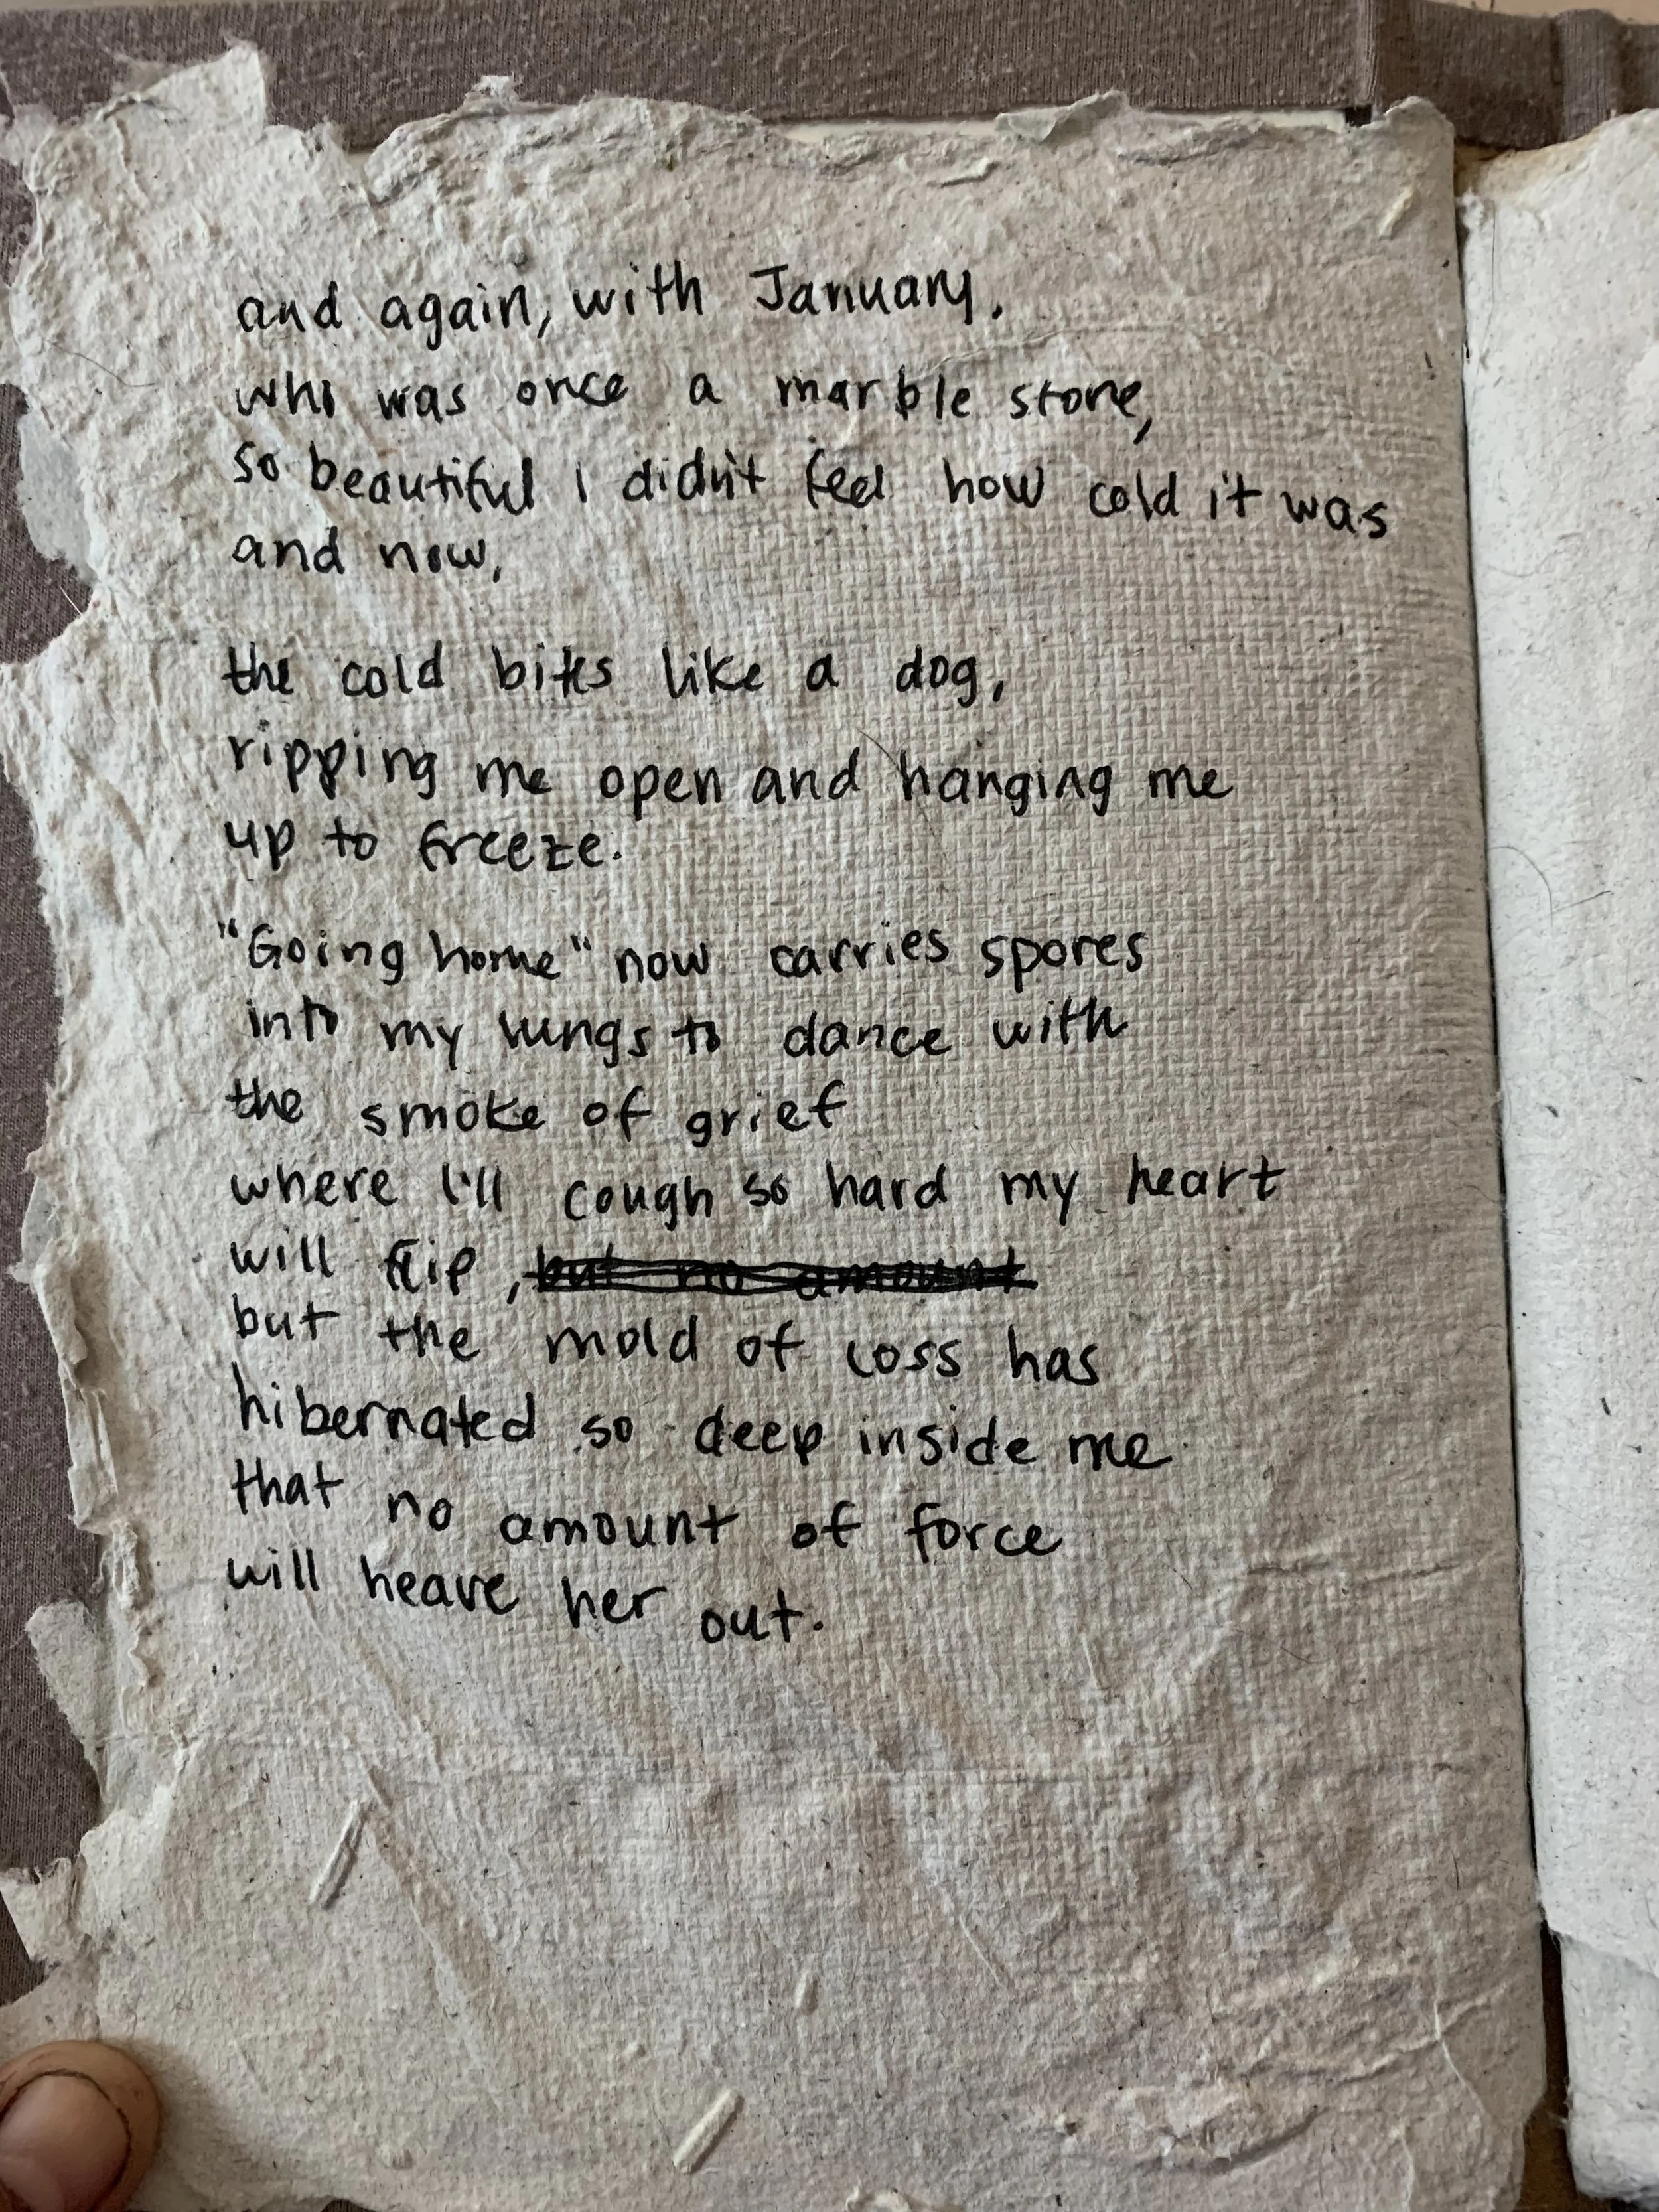 and again, with January.
who was once a marble stone,
so beautiful i didn't feel how cold it was
and now,
the cold bites like a dog,
ripping me open and hanging me
up to freeze.
"Going home" now carries spores
into my lungs to dance with
the smoke of grief
where I'll cough so hard my heart
will flip, but no amount
but the mold of loss has
hibernated so deep inside me
that no amount of force
will heave her out.